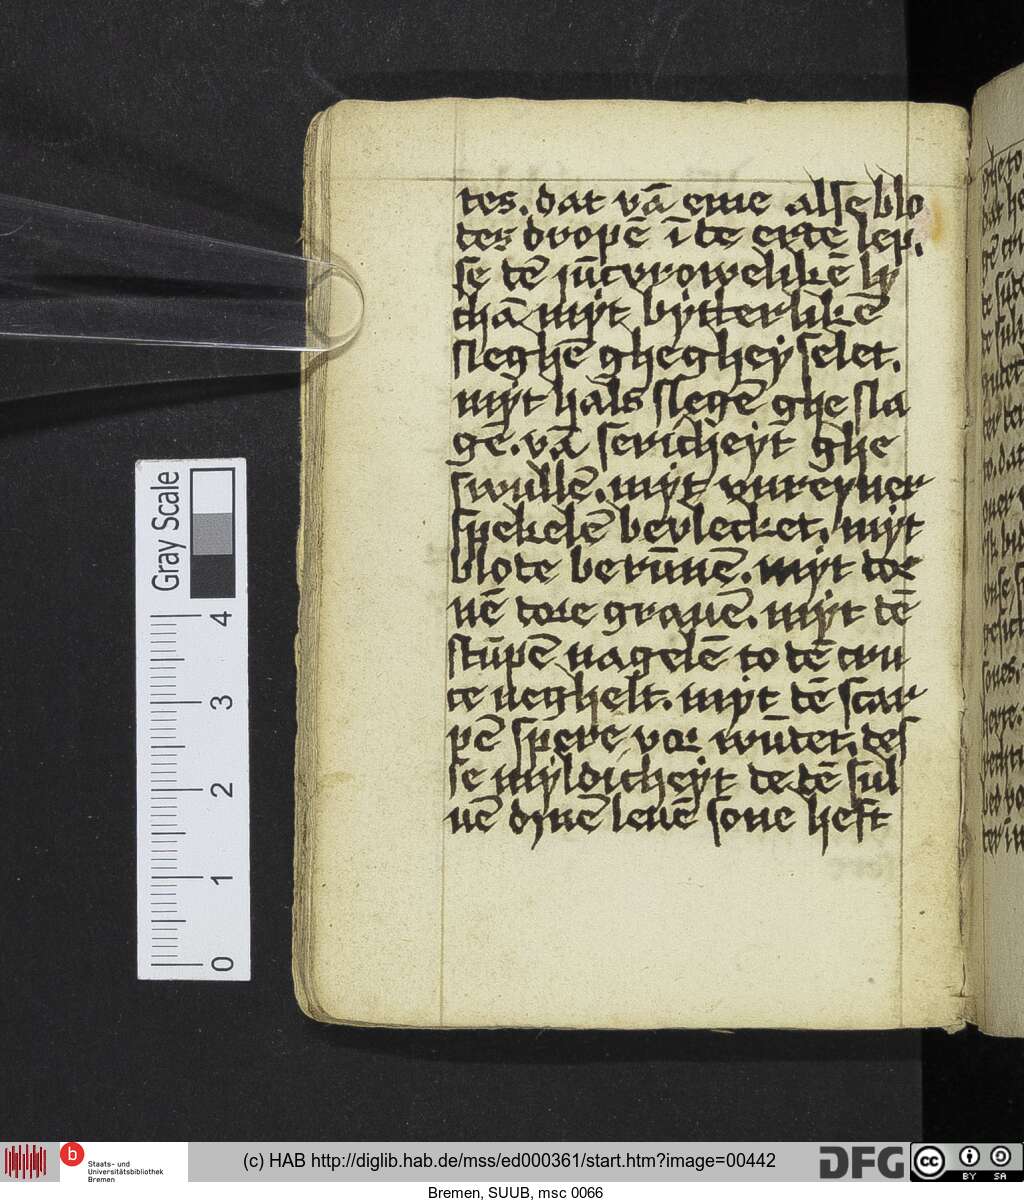 tes. dat vā eme alse blo
tes dropē ī de erdē lep.
se dē jūcvrowelikē ly
chā myt bytterlikē
sleghē ghegheyselet.
myt hals slegē ghe sla
gē. vā sericheyt ghe
swullē. myt vnreyner
spekelē bevlecket. myt
blode berūnē. myt dor
nē dore grauē. myt dē
stūpē nagelē to dē cru
ce neghelt. myt dē scar
pē spere vor wūdet. des
se myldicheyt de dē sul
uē dynē leuē sone heft
Gray Scale
0 1 2 3 4
b Staats- und
Universitätsbibliothek
Bremen
(c) HAB http://diglib.hab.de/mss/ed000361/start.htm?image=00442
DFG
cc BY SA
Bremen, SUUB, msc 0066